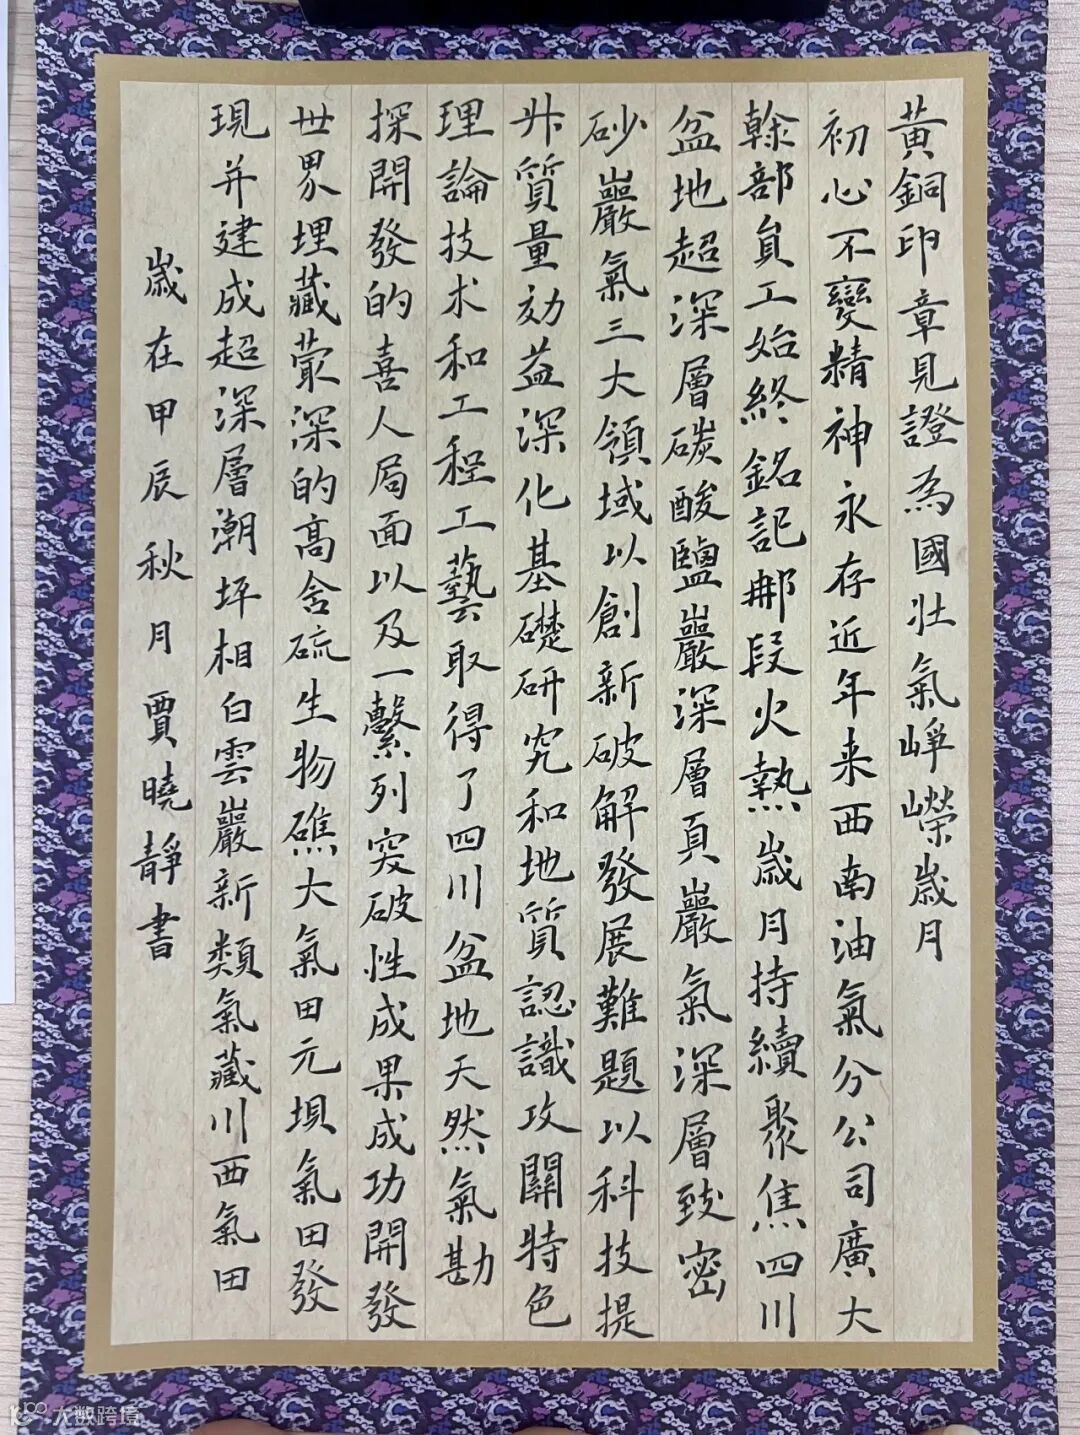 黃銅印章見證為國壯氣崢嶸歲月
初心不變精神永存近年来西南油氣分公司廣大
榦部員工始終銘記那段火熱歲月持續聚焦四川
盆地超深層碳酸鹽巖深層頁巖氣深層致密
砂巖氣三大領域以創新破解發展難題以科技提
升質量効益深化基礎研究和地質認識攻關特色
理論技术和工程工藝取得了四川盆地天然氣勘
探開發的喜人局面以及一繫列突破性成果成功開發
世界埋藏最深的高含硫生物礁大氣田元垻氣田發
現并建成超深層潮坪相白雲巖新類氣藏川西氣田
歲在甲辰秋月賈曉靜書
大数跨境